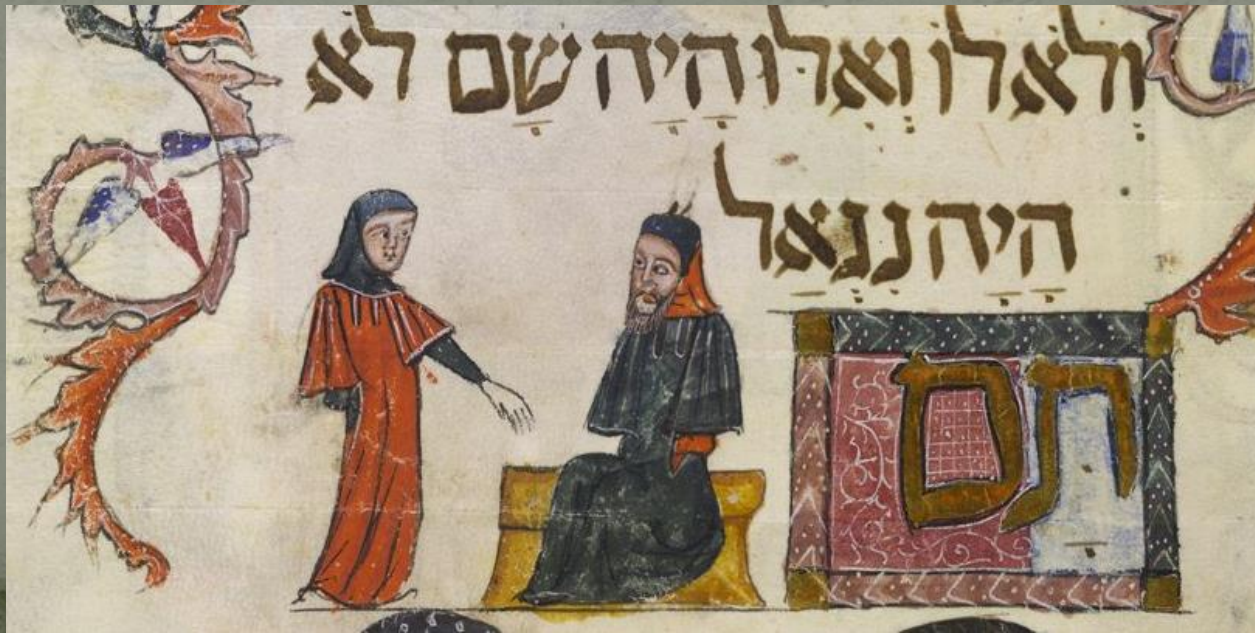 וְלֹא לוֹ וְאִלוּ הָיָה שָׁם לֹא
הָיָה נִגְאָל
תָם